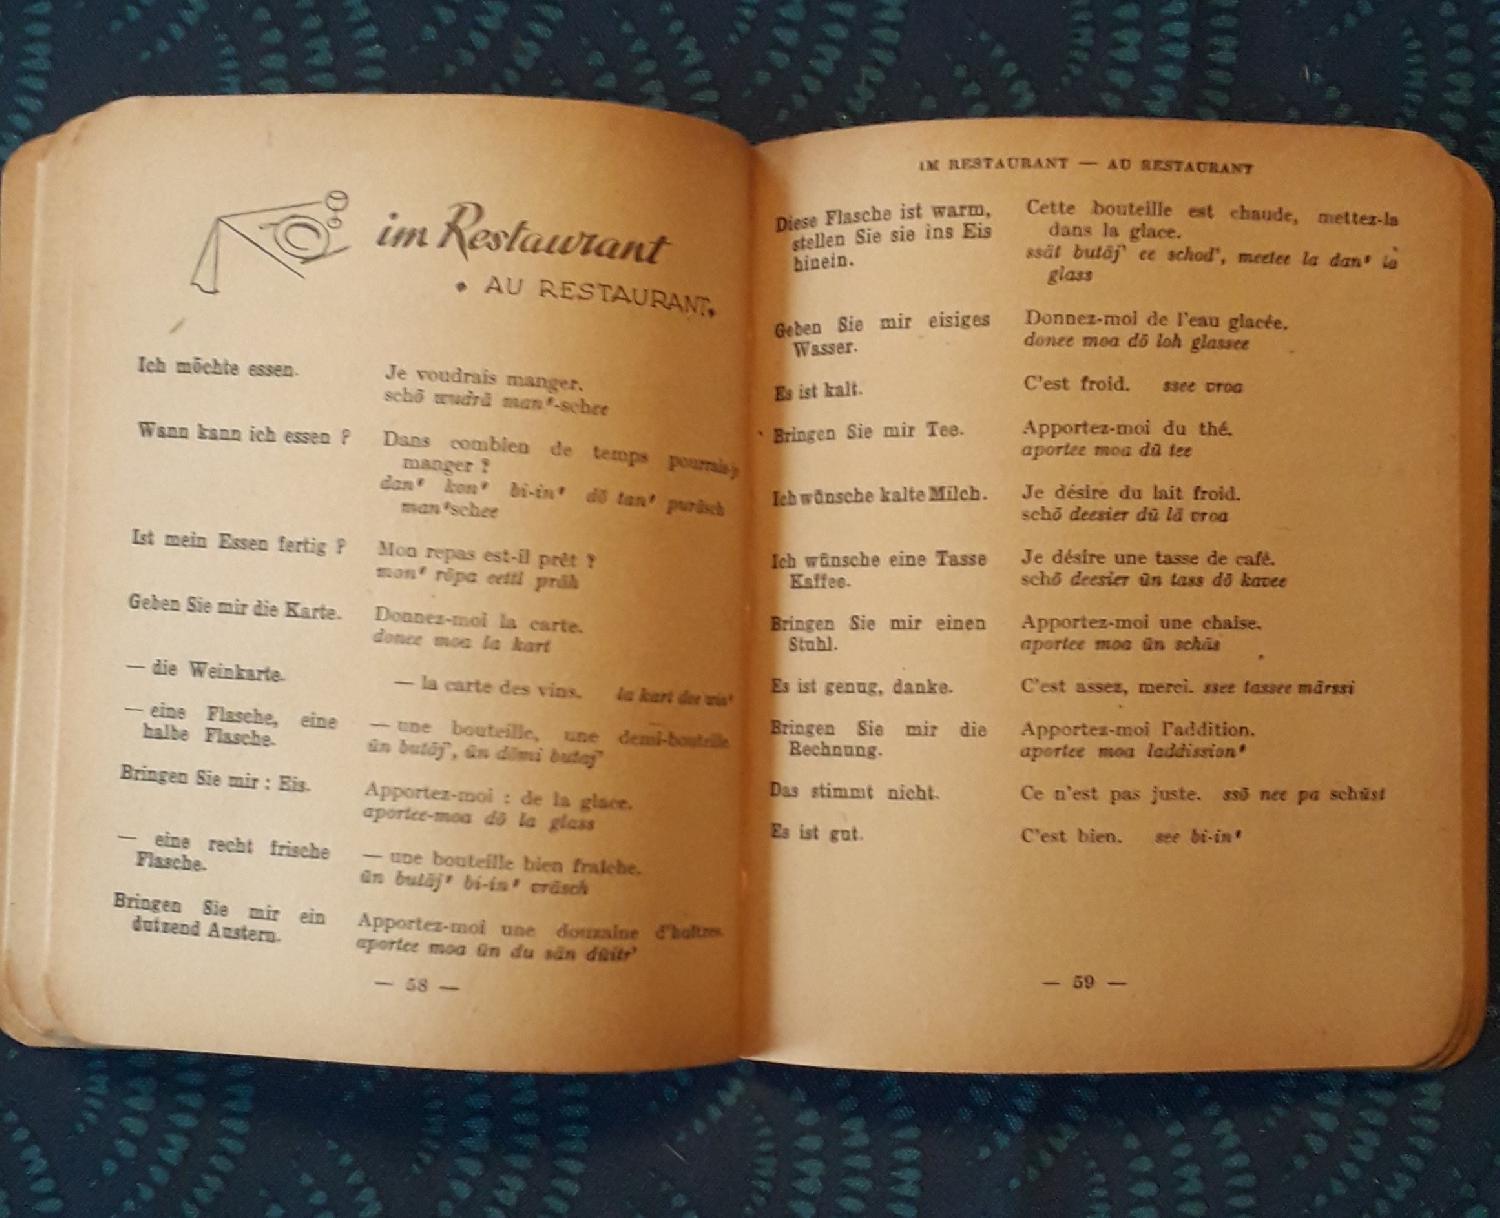 im Restaurant
• AU RESTAURANT •
Ich möchte essen.
Je voudrais manger.
schö wudrä man*-schee
Wann kann ich essen ?
Dans combien de temps pourrais-je
manger ?
dan* kon* bi-in* dö tan* puräsch
man*schee
Ist mein Essen fertig ?
Mon repas est-il prêt ?
mon* röpa eetil präh
Geben Sie mir die Karte.
Donnez-moi la carte.
donee moa la kart
— die Weinkarte.
— la carte des vins. la kart dee win*
— eine Flasche, eine
halbe Flasche.
— une bouteille, une demi-bouteille
ün butäj', ün dömi butaj'
Bringen Sie mir : Eis.
Apportez-moi : de la glace.
aportee-moa dö la glass
— eine recht frische
Flasche.
— une bouteille bien fraîche.
ün butäj* bi-in* vräsch
Bringen Sie mir ein
dutzend Austern.
Apportez-moi une douzaine d'huîtres.
aportee moa ün du sän düitr'
— 58 —
IM RESTAURANT — AU RESTAURANT
Diese Flasche ist warm,
stellen Sie sie ins Eis
hinein.
Cette bouteille est chaude, mettez-la
dans la glace.
ssät butäj' ee schod', meetee la dan* la
glass
Geben Sie mir eisiges
Wasser.
Donnez-moi de l'eau glacée.
donee moa dö loh glassee
Es ist kalt.
C'est froid. ssee vroa
Bringen Sie mir Tee.
Apportez-moi du thé.
aportee moa dü tee
Ich wünsche kalte Milch.
Je désire du lait froid.
schö deesier dü lä vroa
Ich wünsche eine Tasse
Kaffee.
Je désire une tasse de café.
schö deesier ün tass dö kavee
Bringen Sie mir einen
Stuhl.
Apportez-moi une chaise.
aportee moa ün schäs
Es ist genug, danke.
C'est assez, merci. ssee tassee märssi
Bringen Sie mir die
Rechnung.
Apportez-moi l'addition.
aportee moa laddission*
Das stimmt nicht.
Ce n'est pas juste. ssö nee pa schüst
Es ist gut.
C'est bien. see bi-in*
— 59 —